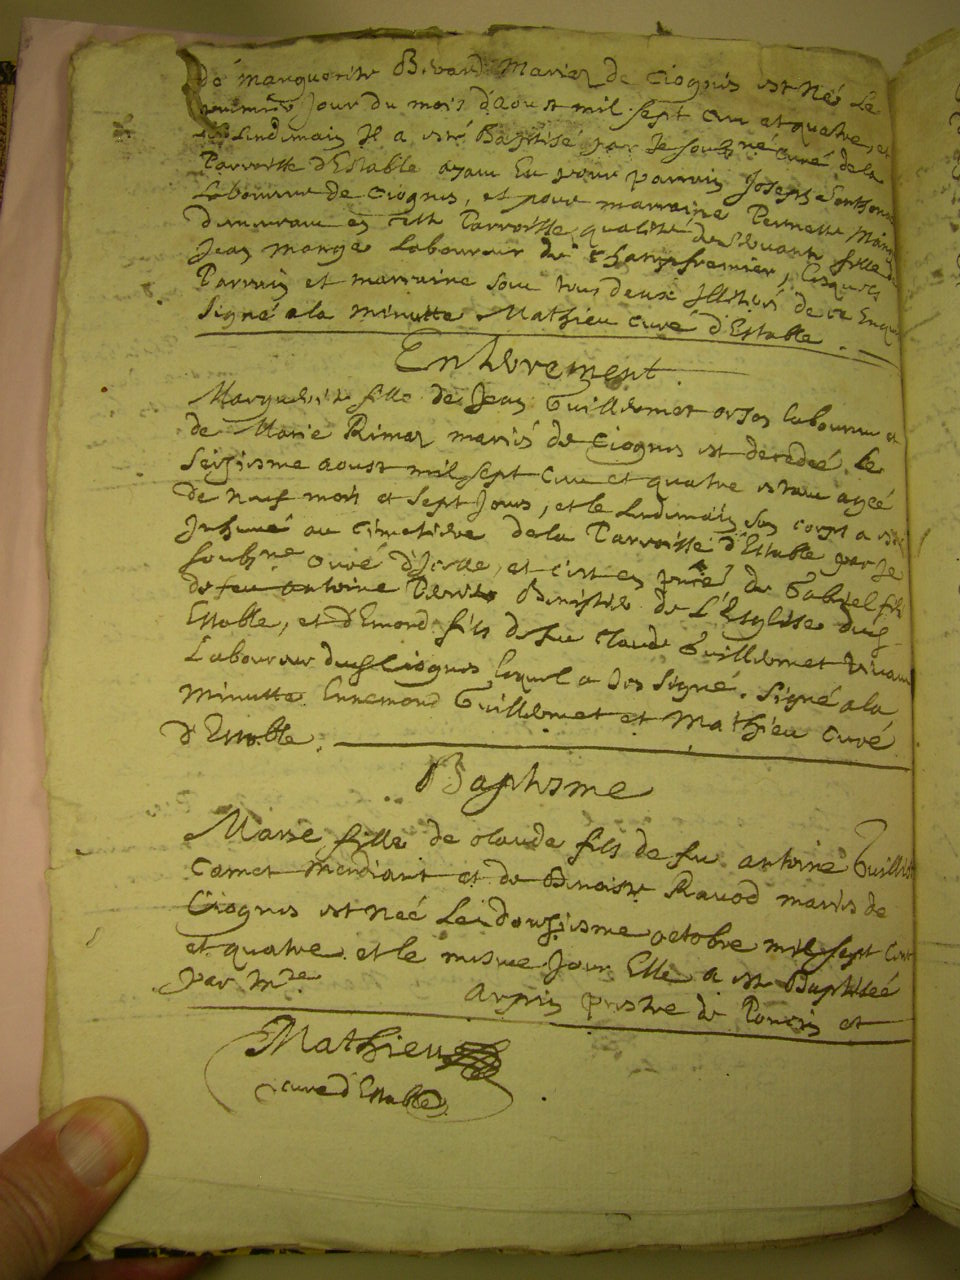 de marguerite Bivard Mariez de Ciognis est Née Le
jour du mois d'aoust mil sept cens et quatre, et
Lendimain Il a esté Baptisé par Je soubz.né curé de la
Parroisse d'Estable ayant Eu pour parrain Joseph
Laboureur de Ciognis, et pour marraine Pernette
demeurant en cette Parroisse qualité de servante fille de
Jean mange Laboureur de Champfremier, Lesquels
Parrain et marraine sont tous deux Illiterés de ce Enquis
Signé a la minutte Mathieu curé d'Estable.
Enterrement.
Marguerite fille de Jean Guillermet orson laboureur et
de Marie Rimaz mariés de Ciognis est decedée le
Seiziesme aoust mil sept cens et quatre estant agée
de neuf mois et sept Jours, et le Lendimain son corps a esté
Inhumé au cimetiere de la Parroisse d'Estable par Je
soubz.né curé d'Icelle, et c'est en pnce de Gabriel fils
de feu antoine Benistie de L'Esglise dud.
Estable, et d'Emond fils de feu Claude Guillermet vivant
Laboureur dud Ciognis Lequel a Icy Signé. Signé a la
Minutte Ennemond Guillermet et Mathieu Curé
d'Estable.
Baptesme
Marie fille de Claude fils de feu antoine Guillermet
Camet Mendiant et de Benoiste Ravod mariés de
Ciognis est Née Le douziesme octobre mil sept cens
et quatre et le mesme Jour Elle a esté Baptisée
par M.re Arpin prestre de Poncin et
Mathieu
curé d'Estable